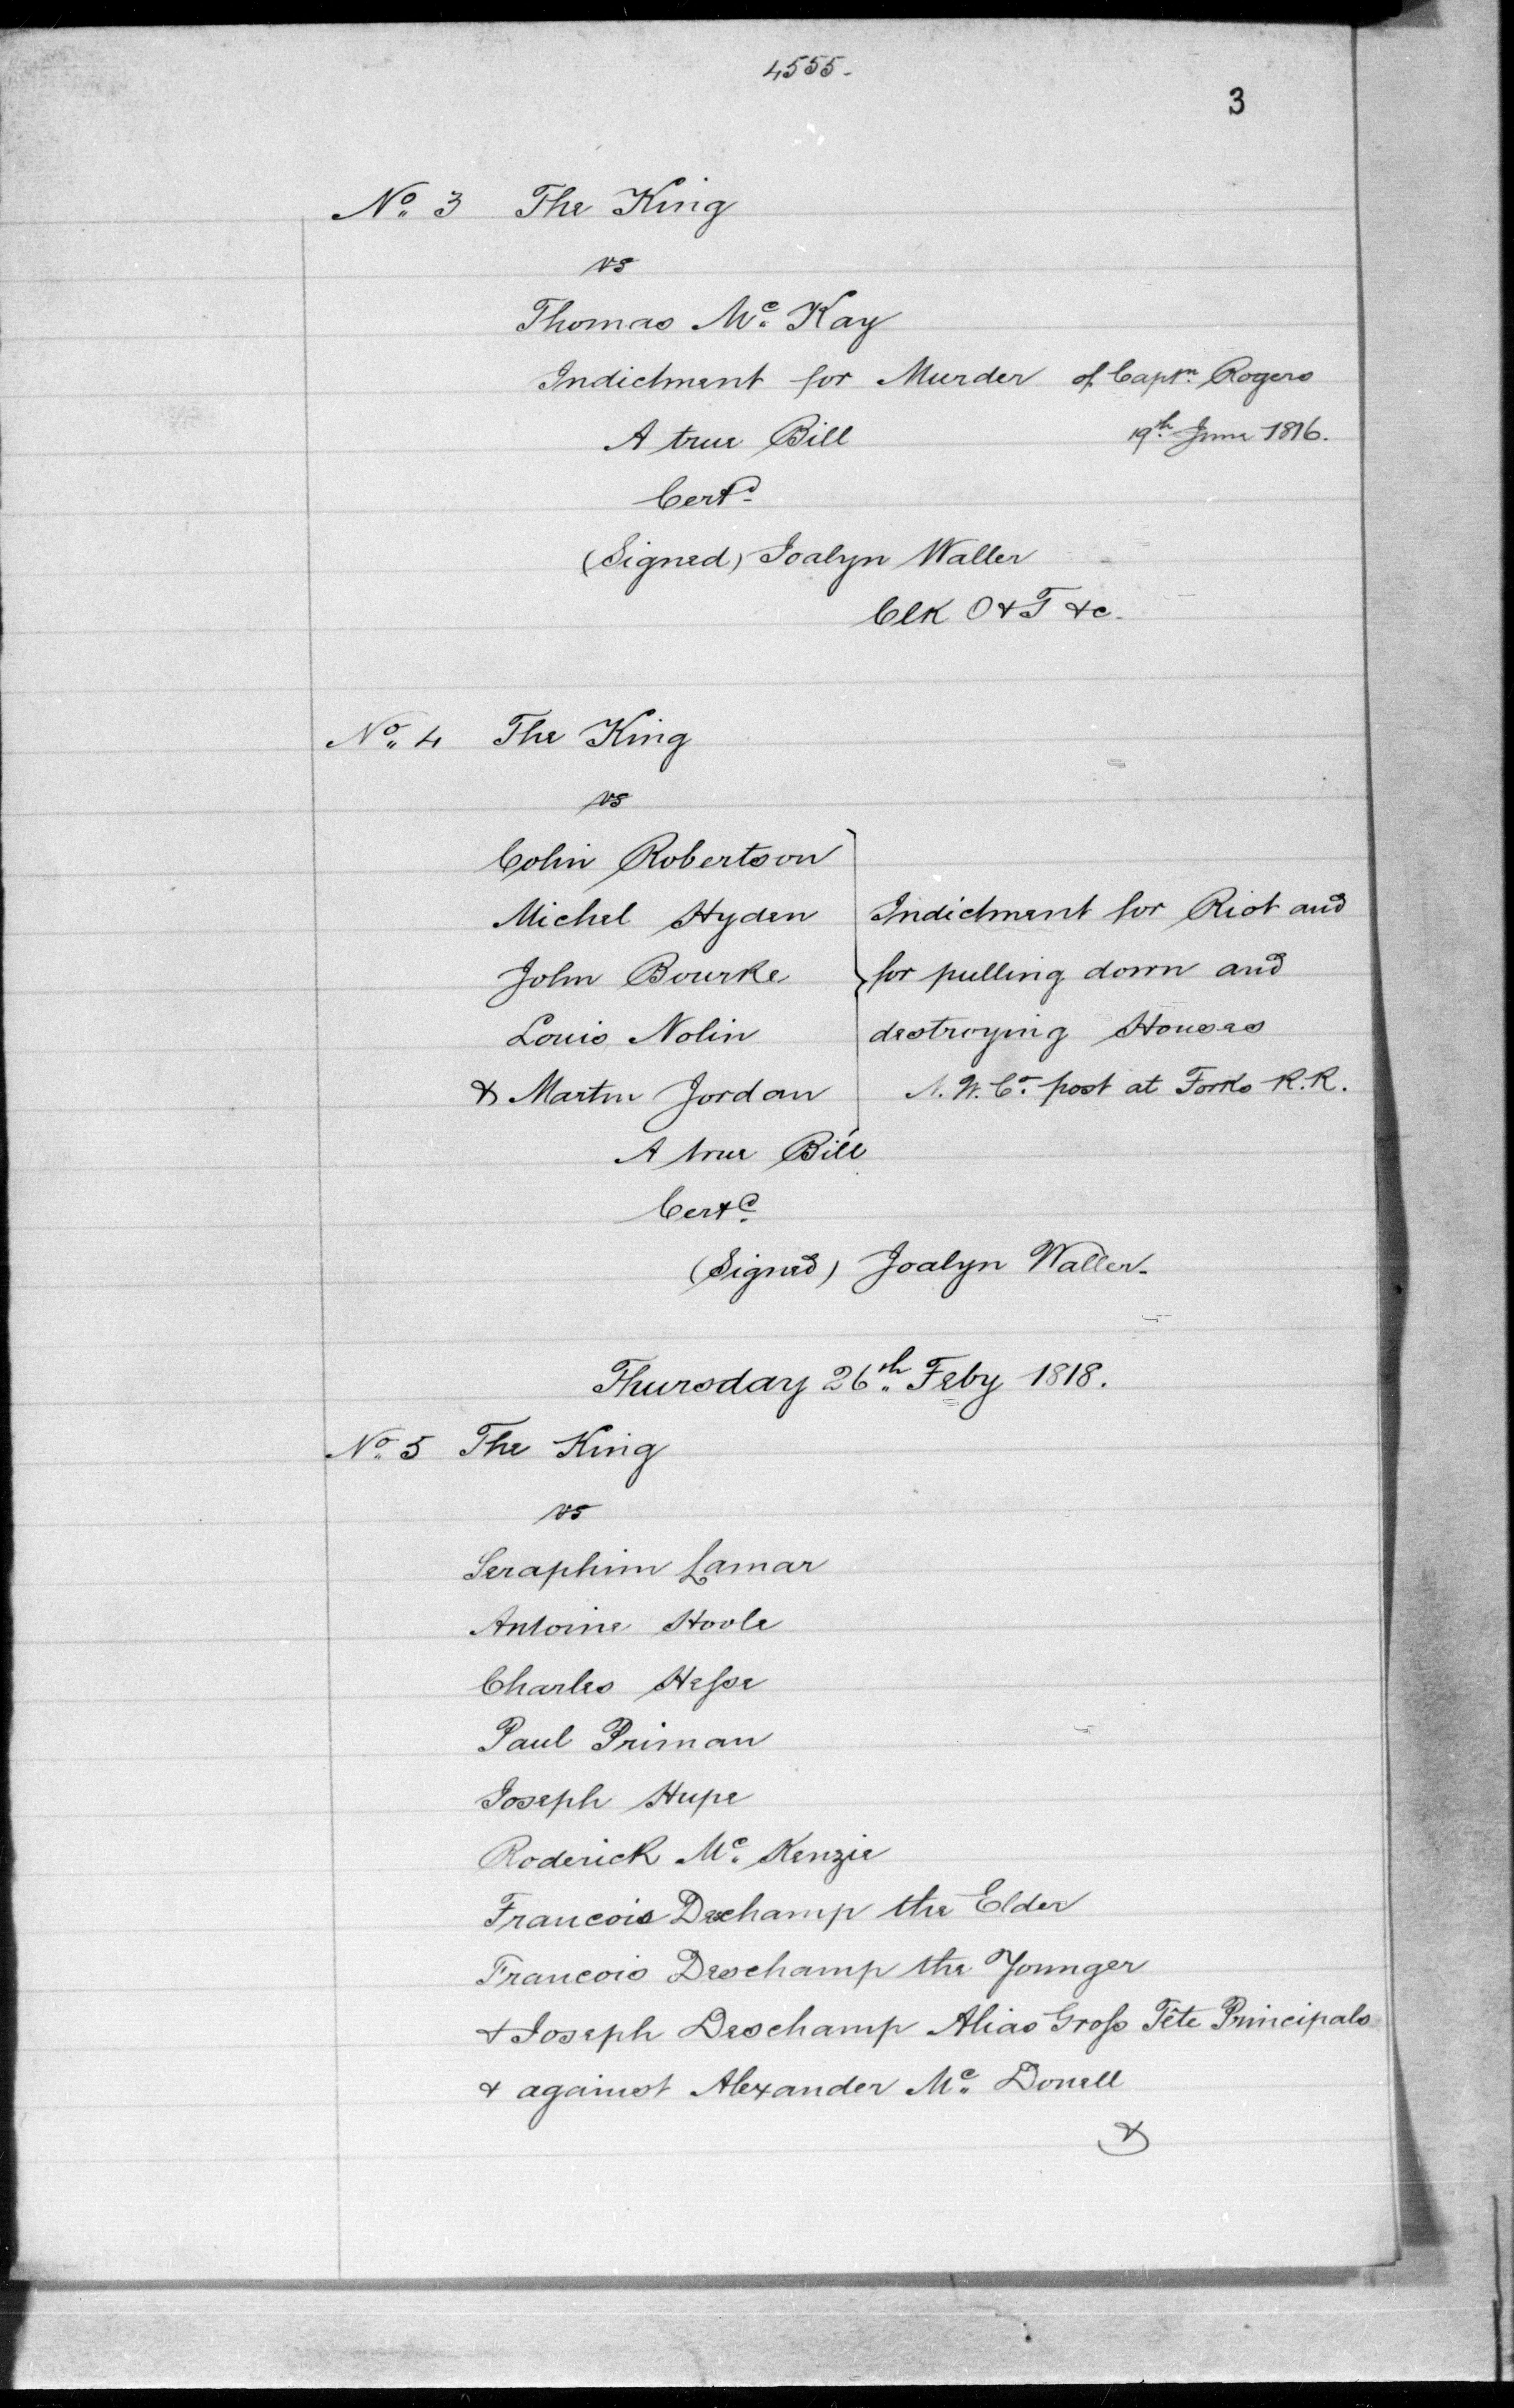 4555.
3
No. 3 The King
vs
Thomas Mc. Kay
Indictment for Murder of Captn. Rogers
A true Bill 19th June 1816.
Certd.
(Signed) Joalyn Waller
Clk O & T &c.
No. 4 The King
vs
Colin Robertson
Michel Hyden Indictment for Riot and
John Bourke for pulling down and
Louis Nolin destroying Houses
& Martin Jordan N. W. Co. post at Forks R.R.
A true Bill
Certd.
(Signed) Joalyn Waller.
Thursday 26th. Feby 1818.
No. 5 The King
vs
Seraphim Lamar
Antoine Hoole
Charles Hesse
Paul Priman
Joseph Hupe
Roderick Mc. Kenzie
Francois Deschamp the Elder
Francois Deschamp the Younger
& Joseph Deschamp Alias Gross Tête Principals
& against Alexander Mc. Donell
&